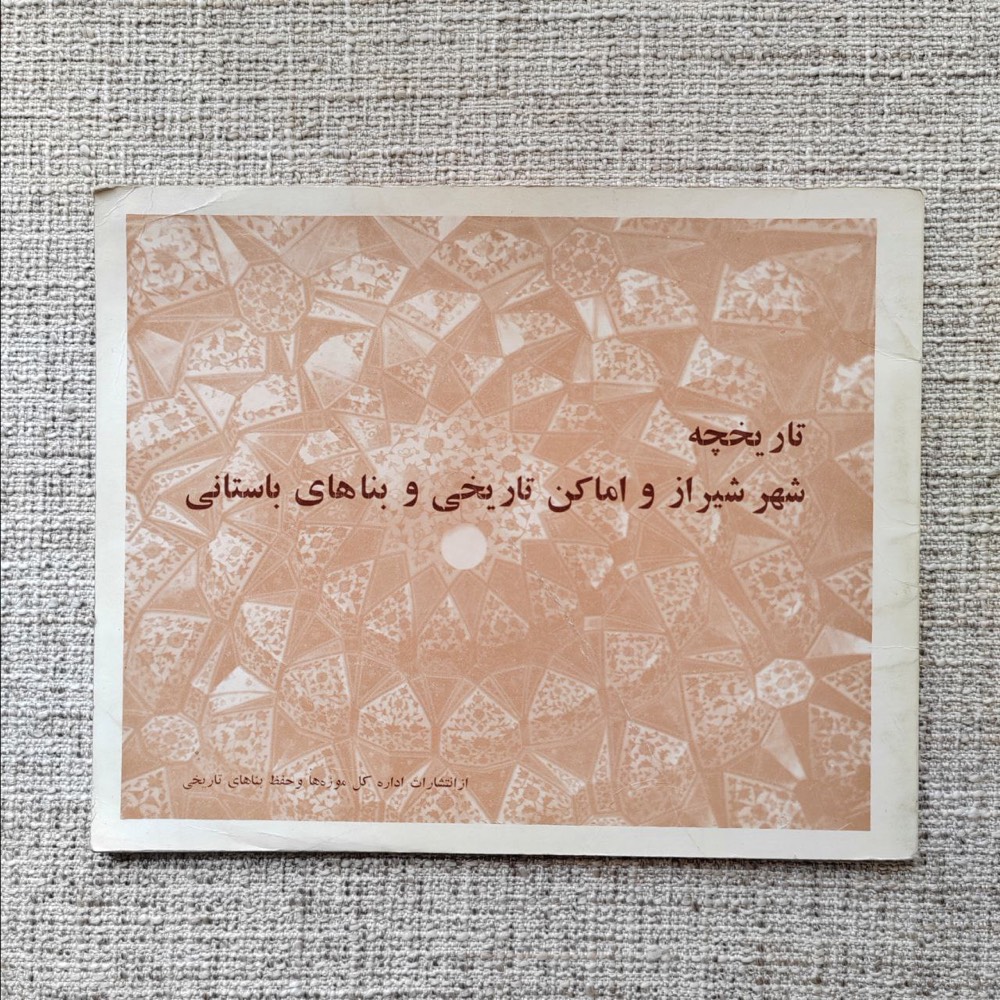 تاریخچه
شهر شیراز و اماکن تاریخی و بناهای باستانی
از انتشارات اداره کل موزه‌ها و حفظ بناهای تاریخی